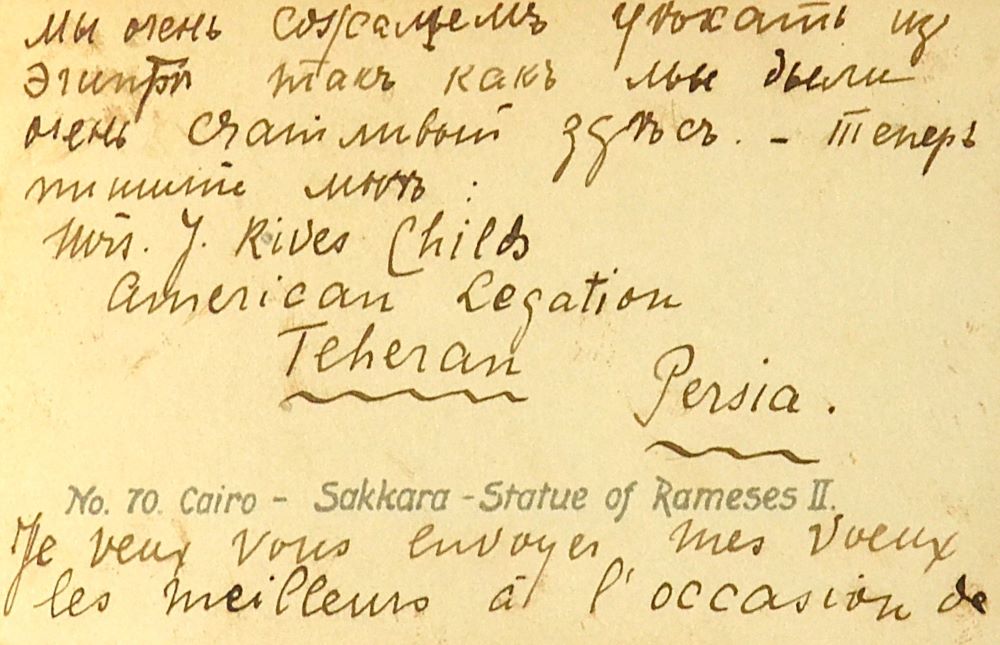 мы очень сожалѣемъ уѣхать из
Эгипта такъ какъ мы были
очень счатливый здѣсъ. – Теперь
пишите мнѣ :
Mrs. J. Rives Childs
American Legation
Teheran
Persia.
No. 70. Cairo – Sakkara – Statue of Rameses II.
Je veux vous envoyer mes voeux
les meilleurs à l'occasion de